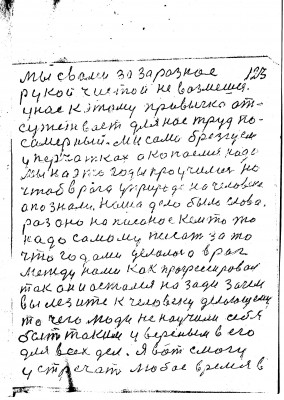 123
мы свами за заразное
рукой чистой не возмеш.
унас кэтому привычка от-
сутствает для нас труд по-
самерный. Ми сами брезгуем
у перчатках а копаемся надо
мы на это годы проучились но
чтоб врага у природе на человека
опознали. Наша дело было слова.
раз оно написоное кемто то
надо самому писат за то
что годами делалось враг
между нами как прогресировал
так он и остался на зади зачем
вы лезите к человеку делающему
то чего люди не научили себя
быт таким увереным в его
для всех дел. Я вот смогу
устречат любое время в